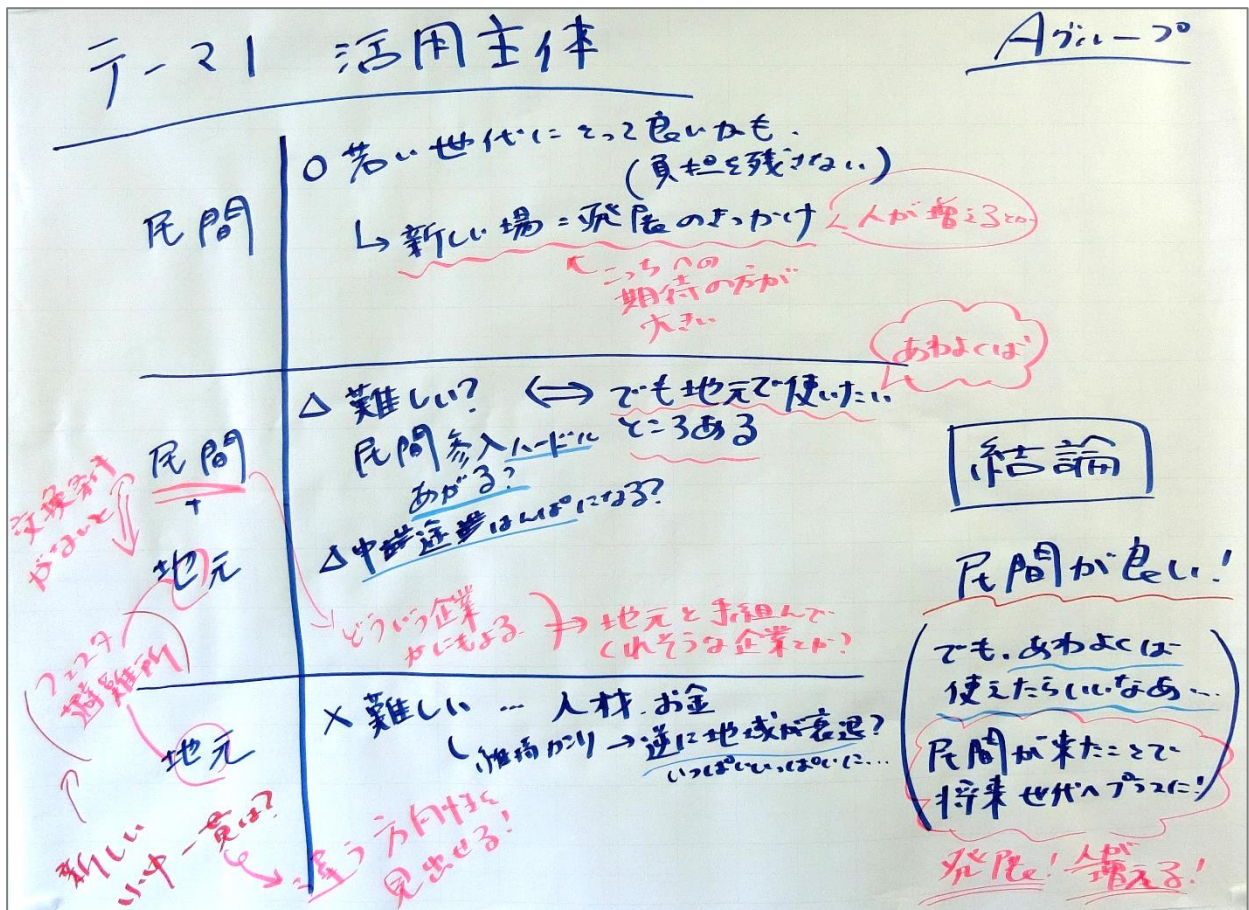 テーマ1 活用主体
Aグループ
民間
○若い世代にとって良いかも.
(負担を残さない)
↳新しい場=発展のきっかけ
人が増えるとか
↖こっちへの
期待の方が
大きい
あわよくば
民間
+
地元
△難しい? ⇔ でも地元で使いたい
ところある
民間参入ハードル
あがる?
△中途はんぱになる?
交換条件
がないと
どういう企業
かにもよる
⇒地元と手組んで
くれそうな企業とか?
フェスタ
避難所
地元
×難しい…人材.お金
維持カンリ→逆に地域が衰退?
いっぱいいっぱいに…
新しい
小中一貫は?
違う方向性を
見出せる!
結論
民間が良い!
でも、あわよくば
使えたらいいなあ…
民間が来たことで
将来世代へプラスに!
発展!人が
増える!